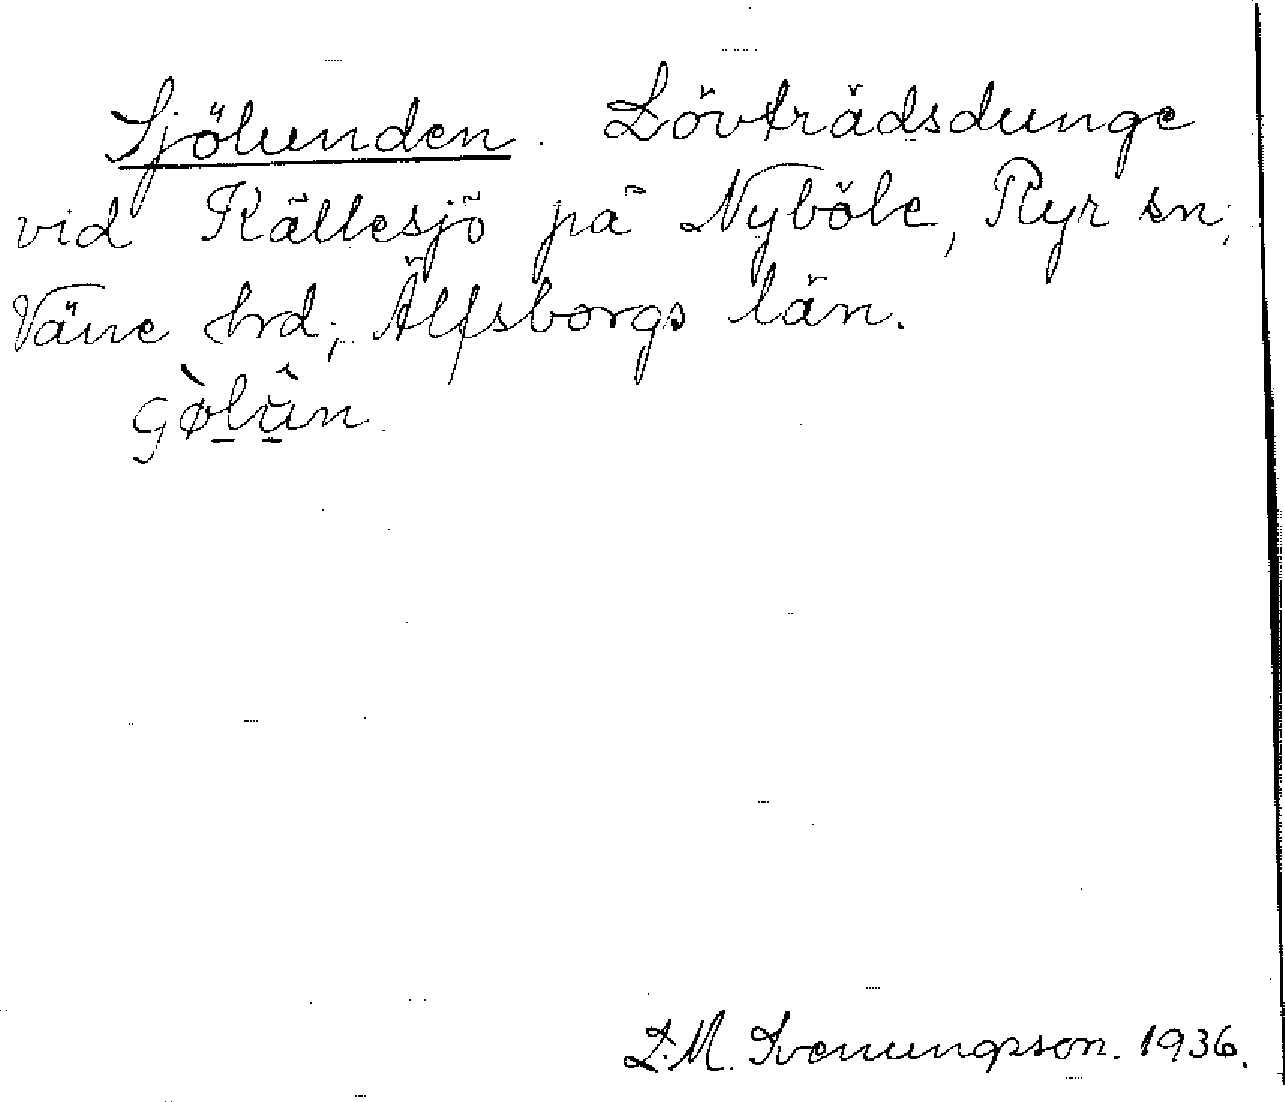 Sjölunden. Lövträdsdunge
vid Källesjö på Nyböle, Ryr sn;
Väne hrd; Älfsborgs län.
D.M. Svenungsson. 1936.